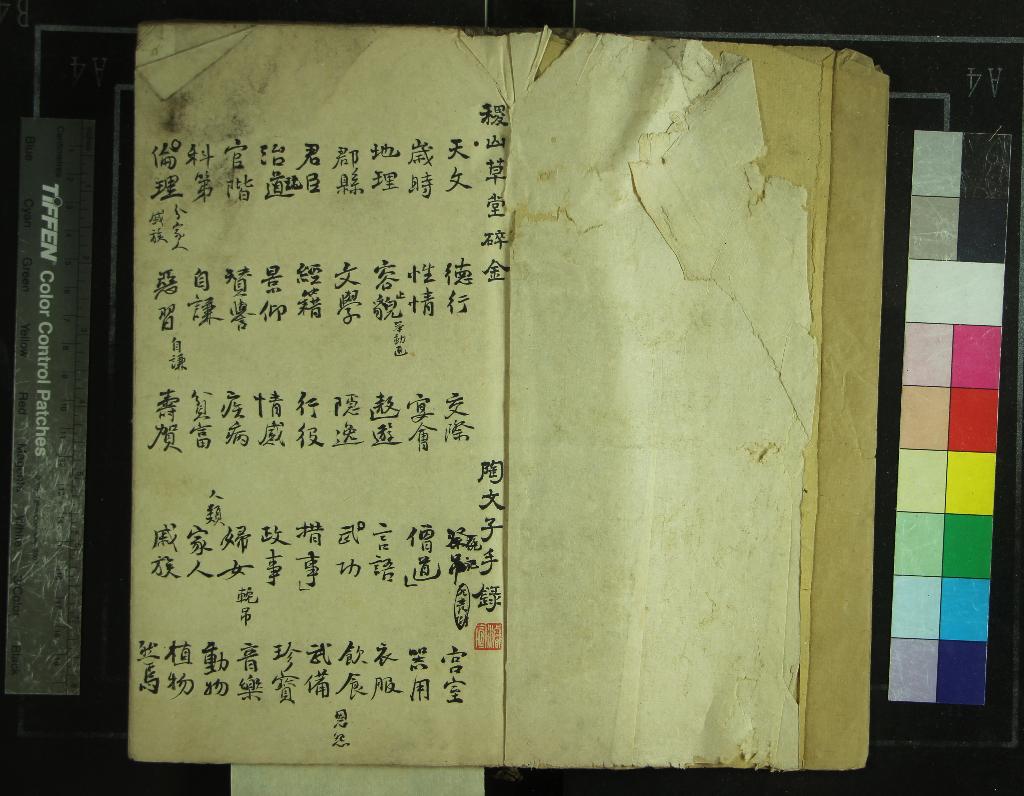 稷山草堂碎金
陶文子手錄
天文 德行 交際 宮室
歲時 性情 宴會 僧道 器用
地理 容貌 遨遊 言語 衣服
舉動
郡縣 文學 隱逸 武功 飲食
恩怨
君臣 經籍 行役 措事 武備
治道 景仰 情感 政事 珍寶
官階 贊譽 疾病 婦女 音樂
輓吊
科第 自謙 貧富 家人 動物
人類
倫理 惡習 壽賀 戚族 植物
分家人
戚族
自謙
TIFFEN Color Control Patches
Blue Cyan Green Yellow Red Magenta
A4
A4